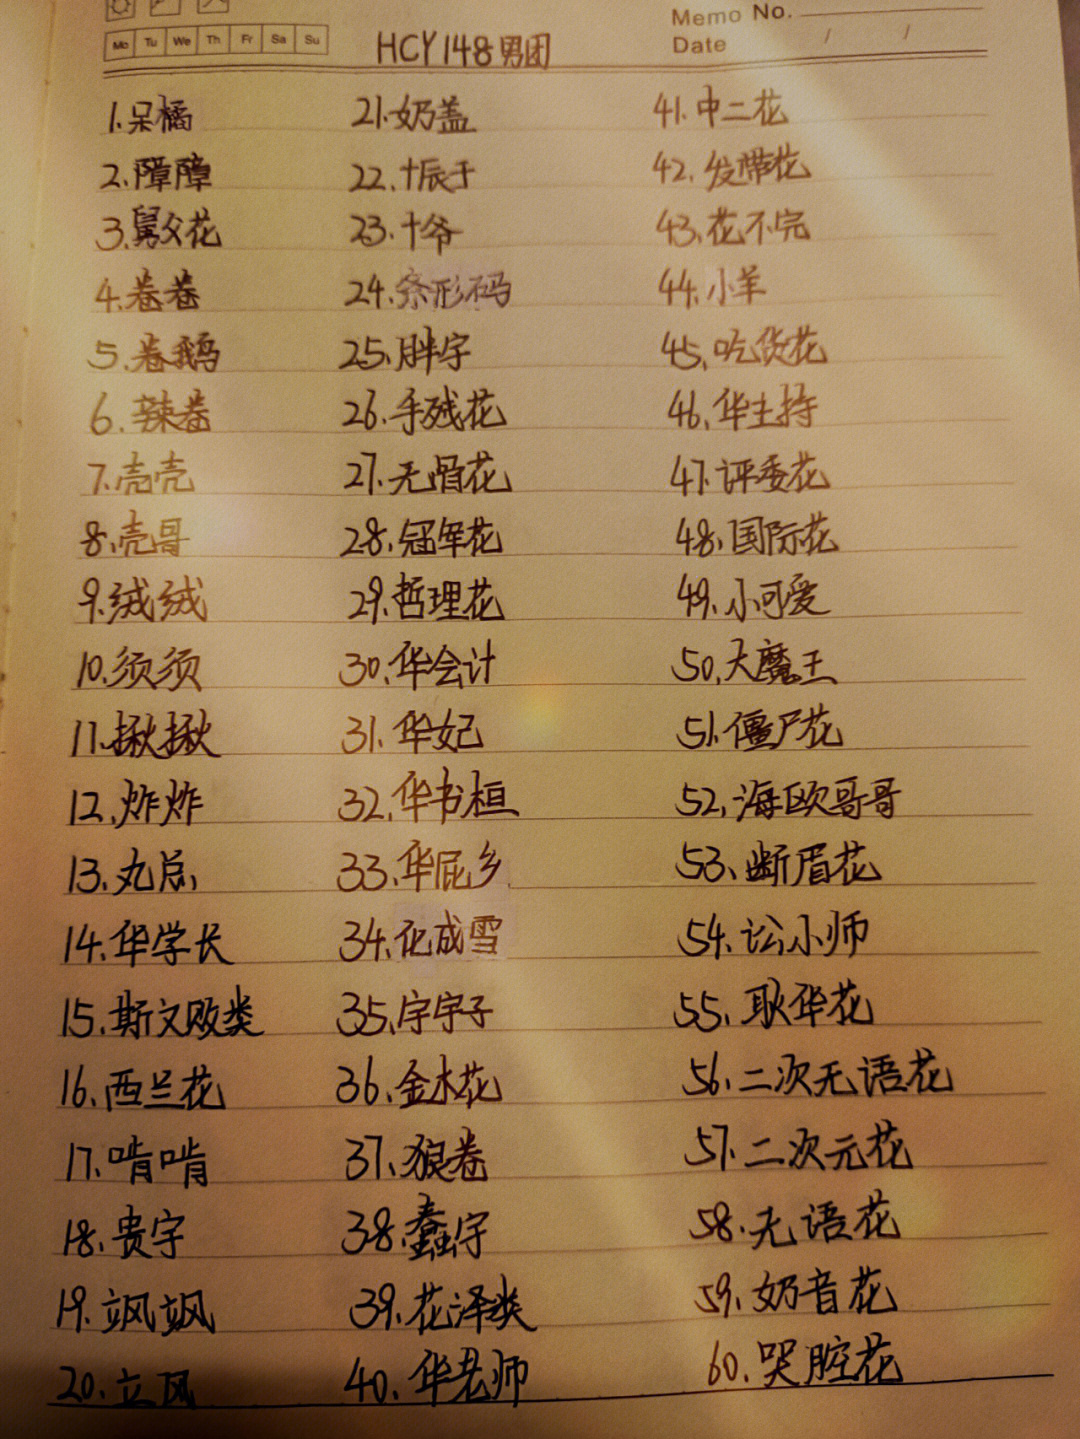 Mo Tu We Th Fr Sa Su
Memo No.
Date / /
HCY148男团
1.呆橘
2.障障
3.舅父花
4.卷卷
5.卷鹅
6.辣卷
7.壳壳
8.壳哥
9.绒绒
10.须须
11.揪揪
12.炸炸
13.丸点
14.华学长
15.斯文败类
16.西兰花
17.啃啃
18.贵宇
19.飒飒
20.立风
21.奶盖
22.十辰于
23.十爷
24.条形码
25.胖宇
26.手残花
27.无骨花
28.冠军花
29.哲理花
30.华会计
31.华妃
32.华书桓
33.华屁乡
34.化成雪
35.宇宇子
36.金木花
37.狼卷
38.蠢宇
39.花泽类
40.华老师
41.中二花
42.发带花
43.花不完
44.小羊
45.吃货花
46.华主持
47.评委花
48.国际花
49.小可爱
50.大魔王
51.僵尸花
52.海欧哥哥
53.断眉花
54.讼小师
55.耿华花
56.二次无语花
57.二次元花
58.无语花
59.奶音花
60.哭腔花